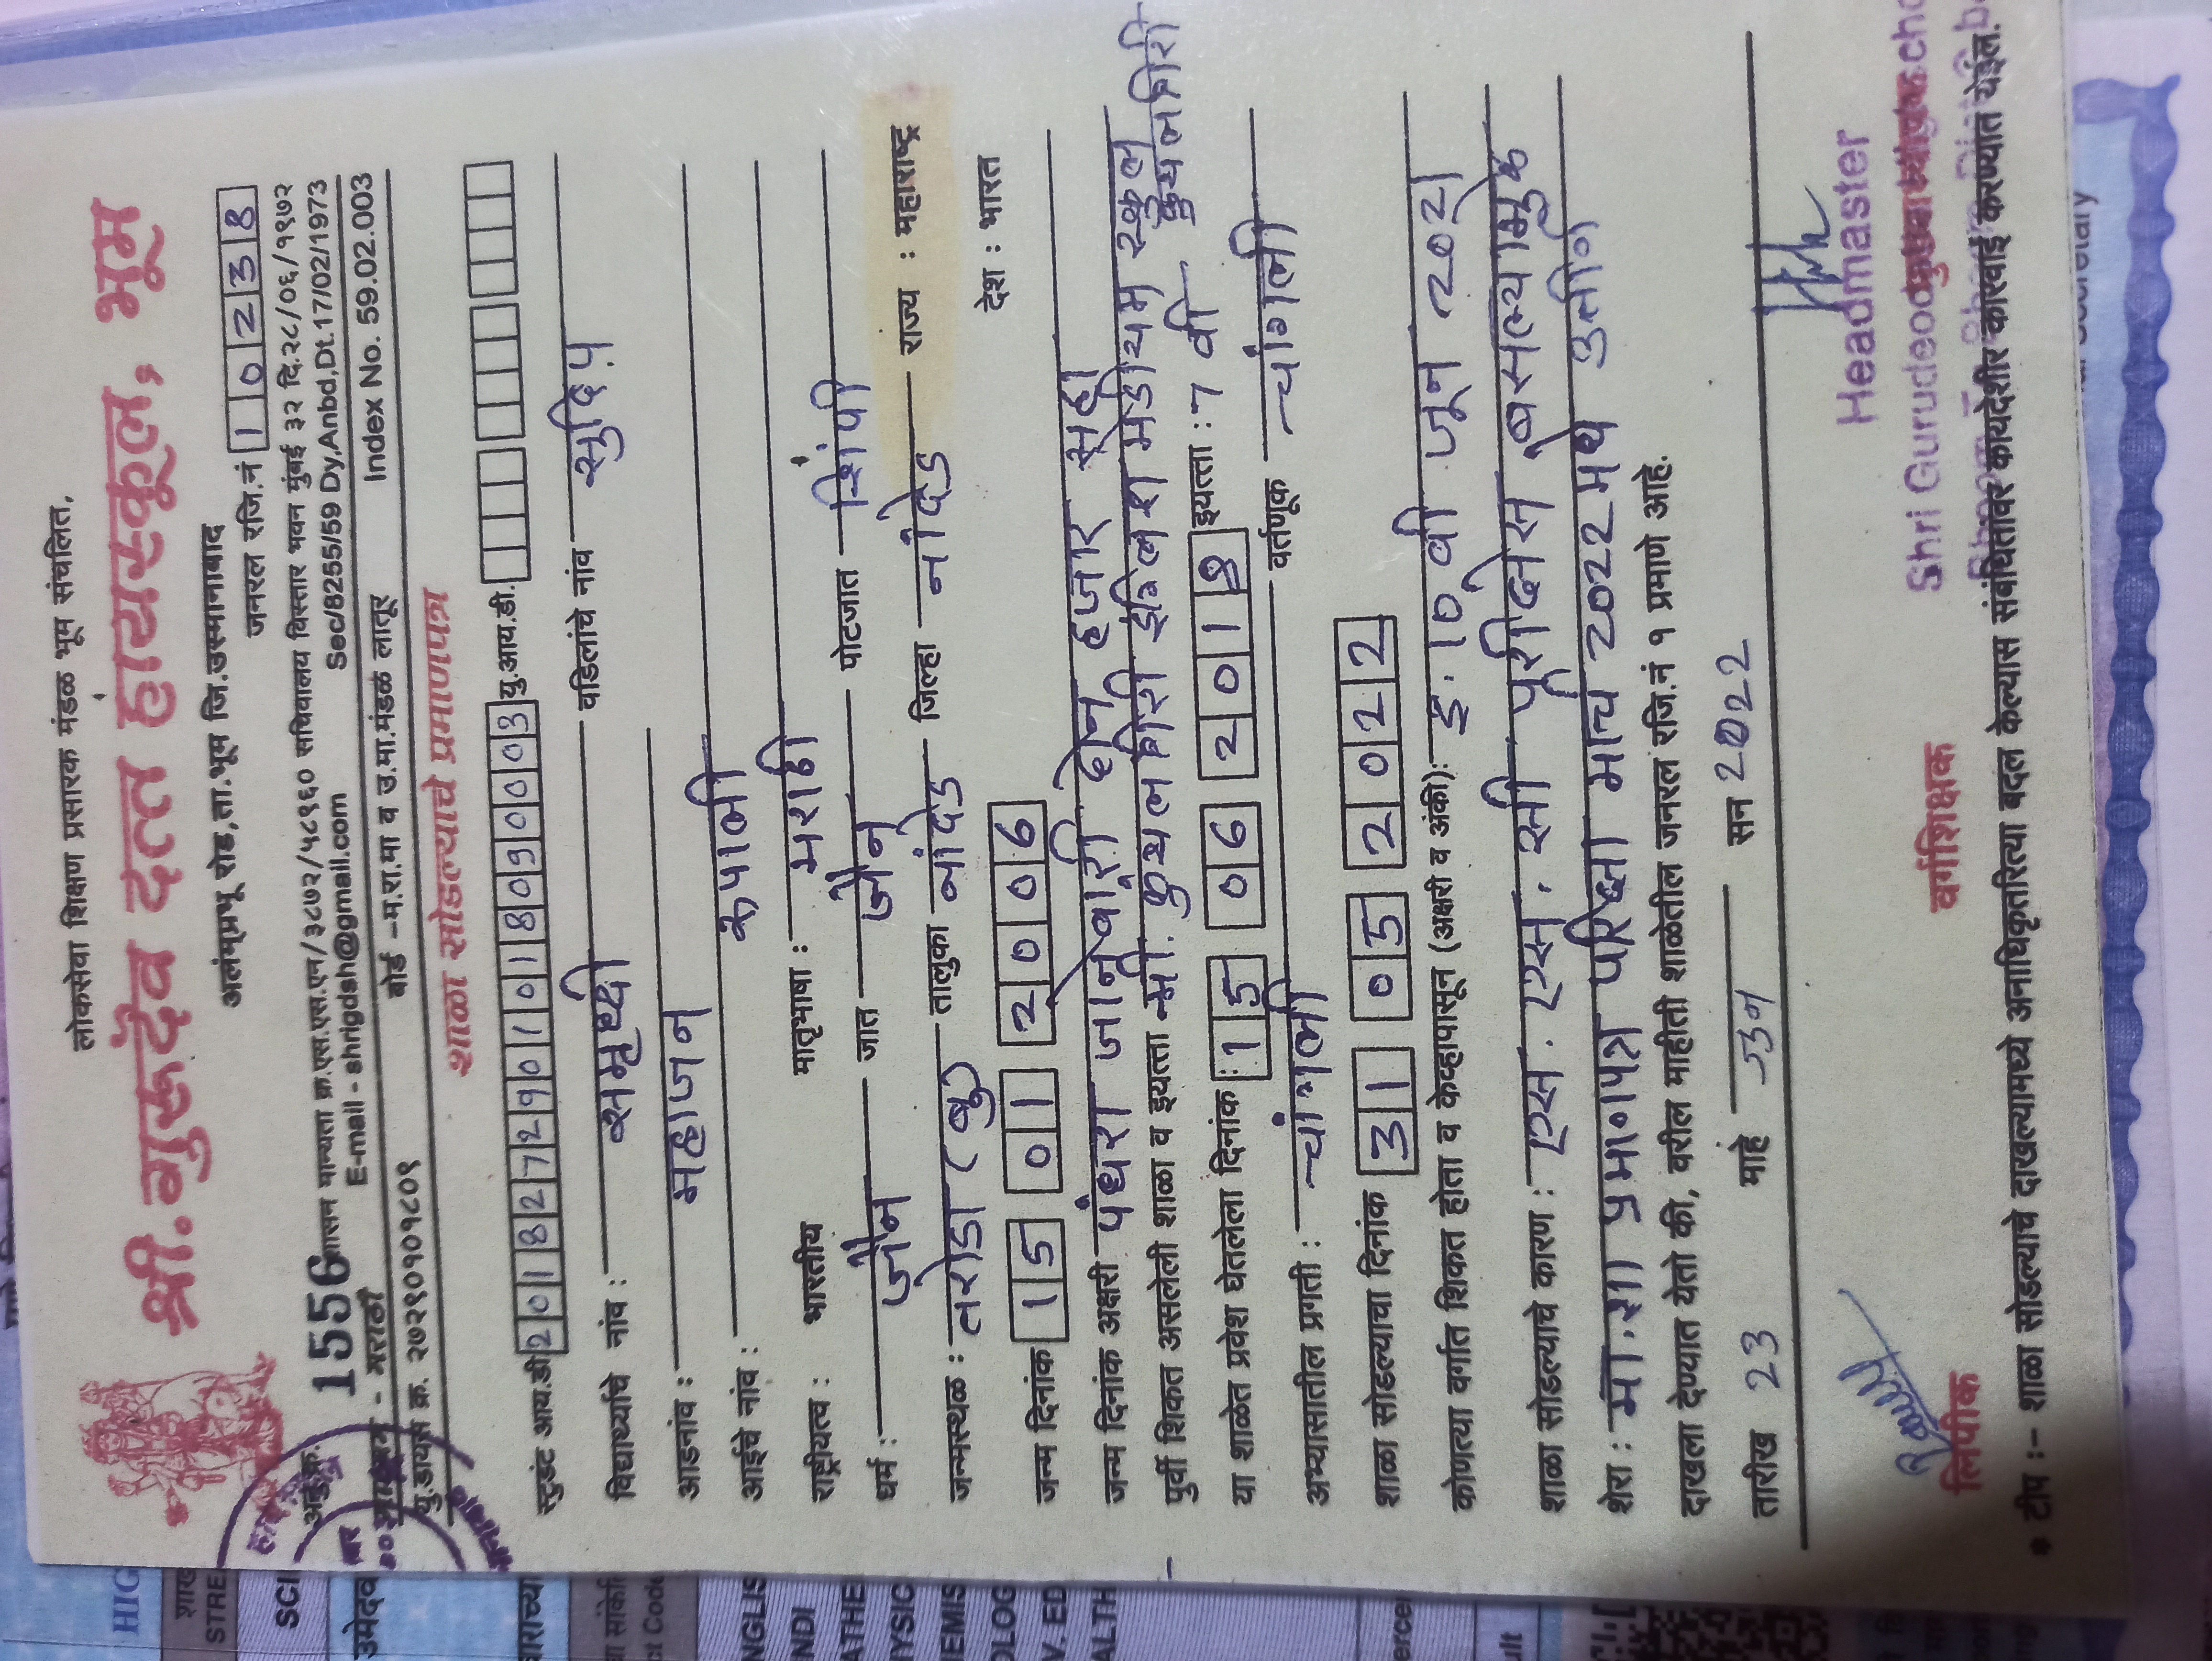 लोकसेवा शिक्षण प्रसारक मंडळ भूम संचलित,
श्री.गुरुदेव दत्त हायस्कूल, भूम
अलंमप्रभू रोड,ता.भूम जि.उस्मानाबाद
जनरल रजि.नं 10238
अनु.क्र. 1556 शासन मान्यता क्र.एस.एस.एन/३८७२/५८१६० सचिवालय विस्तार भवन मुंबई ३२ दि.२८/०६/१९७२
E-mail - shrigdsh@gmail.com Sec/8255/59 Dy,Anbd,Dt.17/02/1973
माध्यम - मराठी बोर्ड -म.रा.मा व उ.मा.मंडळ लातूर Index No. 59.02.003
यु.डायस क्र. २७२९०१०१८०९
शाळा सोडल्याचे प्रमाणपत्र
स्टुडंट आय.डी 2018272901018090003 यु.आय.डी.
विद्यार्थ्याचे नांव : समृध्दी वडिलांचे नांव सुदिप
आडनांव : महाजन
आईचे नांव : रूपाली
राष्ट्रीयत्व : भारतीय मातृभाषा : मराठी
धर्म : जैन जात जैन पोटजात शिंपी
जन्मस्थळ : तरोडा (बु) तालुका नांदेड जिल्हा नांदेड राज्य : महाराष्ट्र
देश : भारत
जन्म दिनांक 15 01 2006
जन्म दिनांक अक्षरी पंधरा जानेवारी दोन हजार सहा
पुर्वी शिकत असलेली शाळा व इयत्ता श्री. कुंथलगिरी इंग्लिश मिडीयम स्कुल कुंथलगिरी
या शाळेत प्रवेश घेतलेला दिनांक 15 06 2019 इयत्ता : 7 वी
अभ्यासातील प्रगती : चांगली वर्तणूक चांगली
शाळा सोडल्याचा दिनांक 31 05 2022
कोणत्या वर्गात शिकत होता व केव्हापासून (अक्षरी व अंकी): इ. 10 वी जून 2021
शाळा सोडल्याचे कारण : एस. एस. सी परीक्षेस बसल्यामुळे
शेरा : मा.शा प्रमाणपत्र परिक्षा मार्च 2022 मधे उत्तीर्ण
दाखला देण्यात येतो की, वरील माहीती शाळेतील जनरल रजि.नं १ प्रमाणे आहे.
तारीख 23 माहे जून सन 2022
लिपीक वर्गशिक्षक
Headmaster
Shri Gurudeo
* टीप :- शाळा सोडल्याचे दाखल्यामध्ये अनाधिकृतरित्या बदल केल्यास संबंधितावर कायदेशीर कारवाई करण्यात येईल.